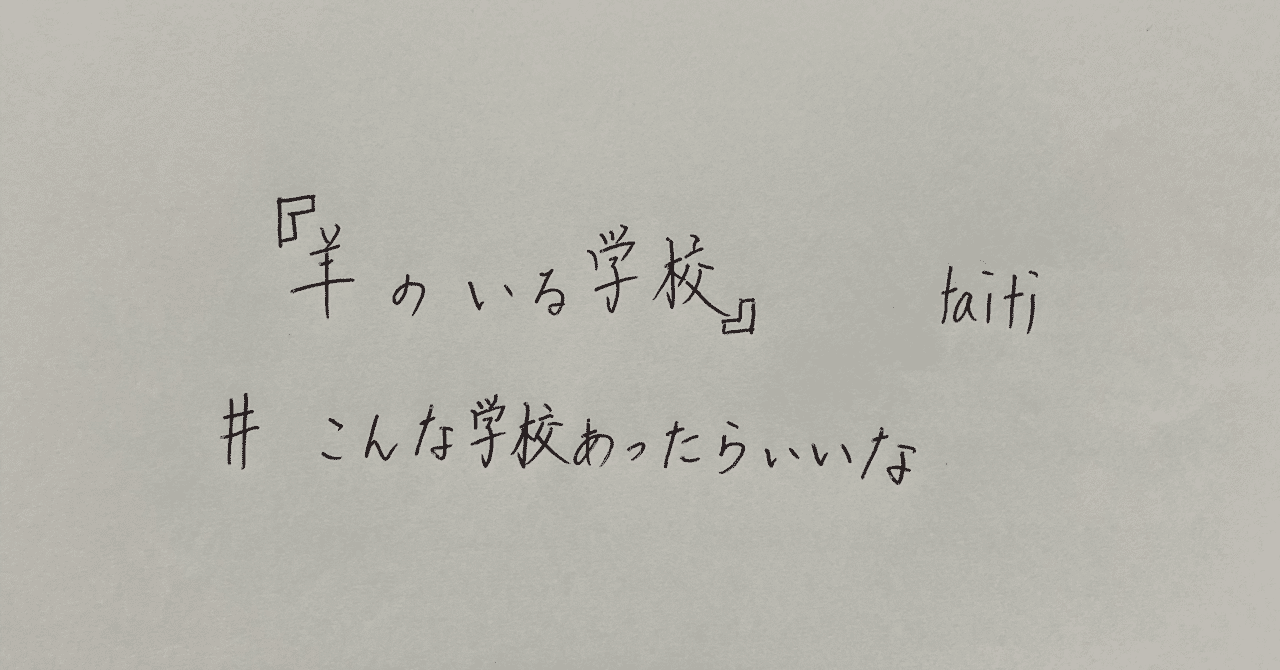 『羊のいる学校』 taiti
# こんな学校あったらいいな